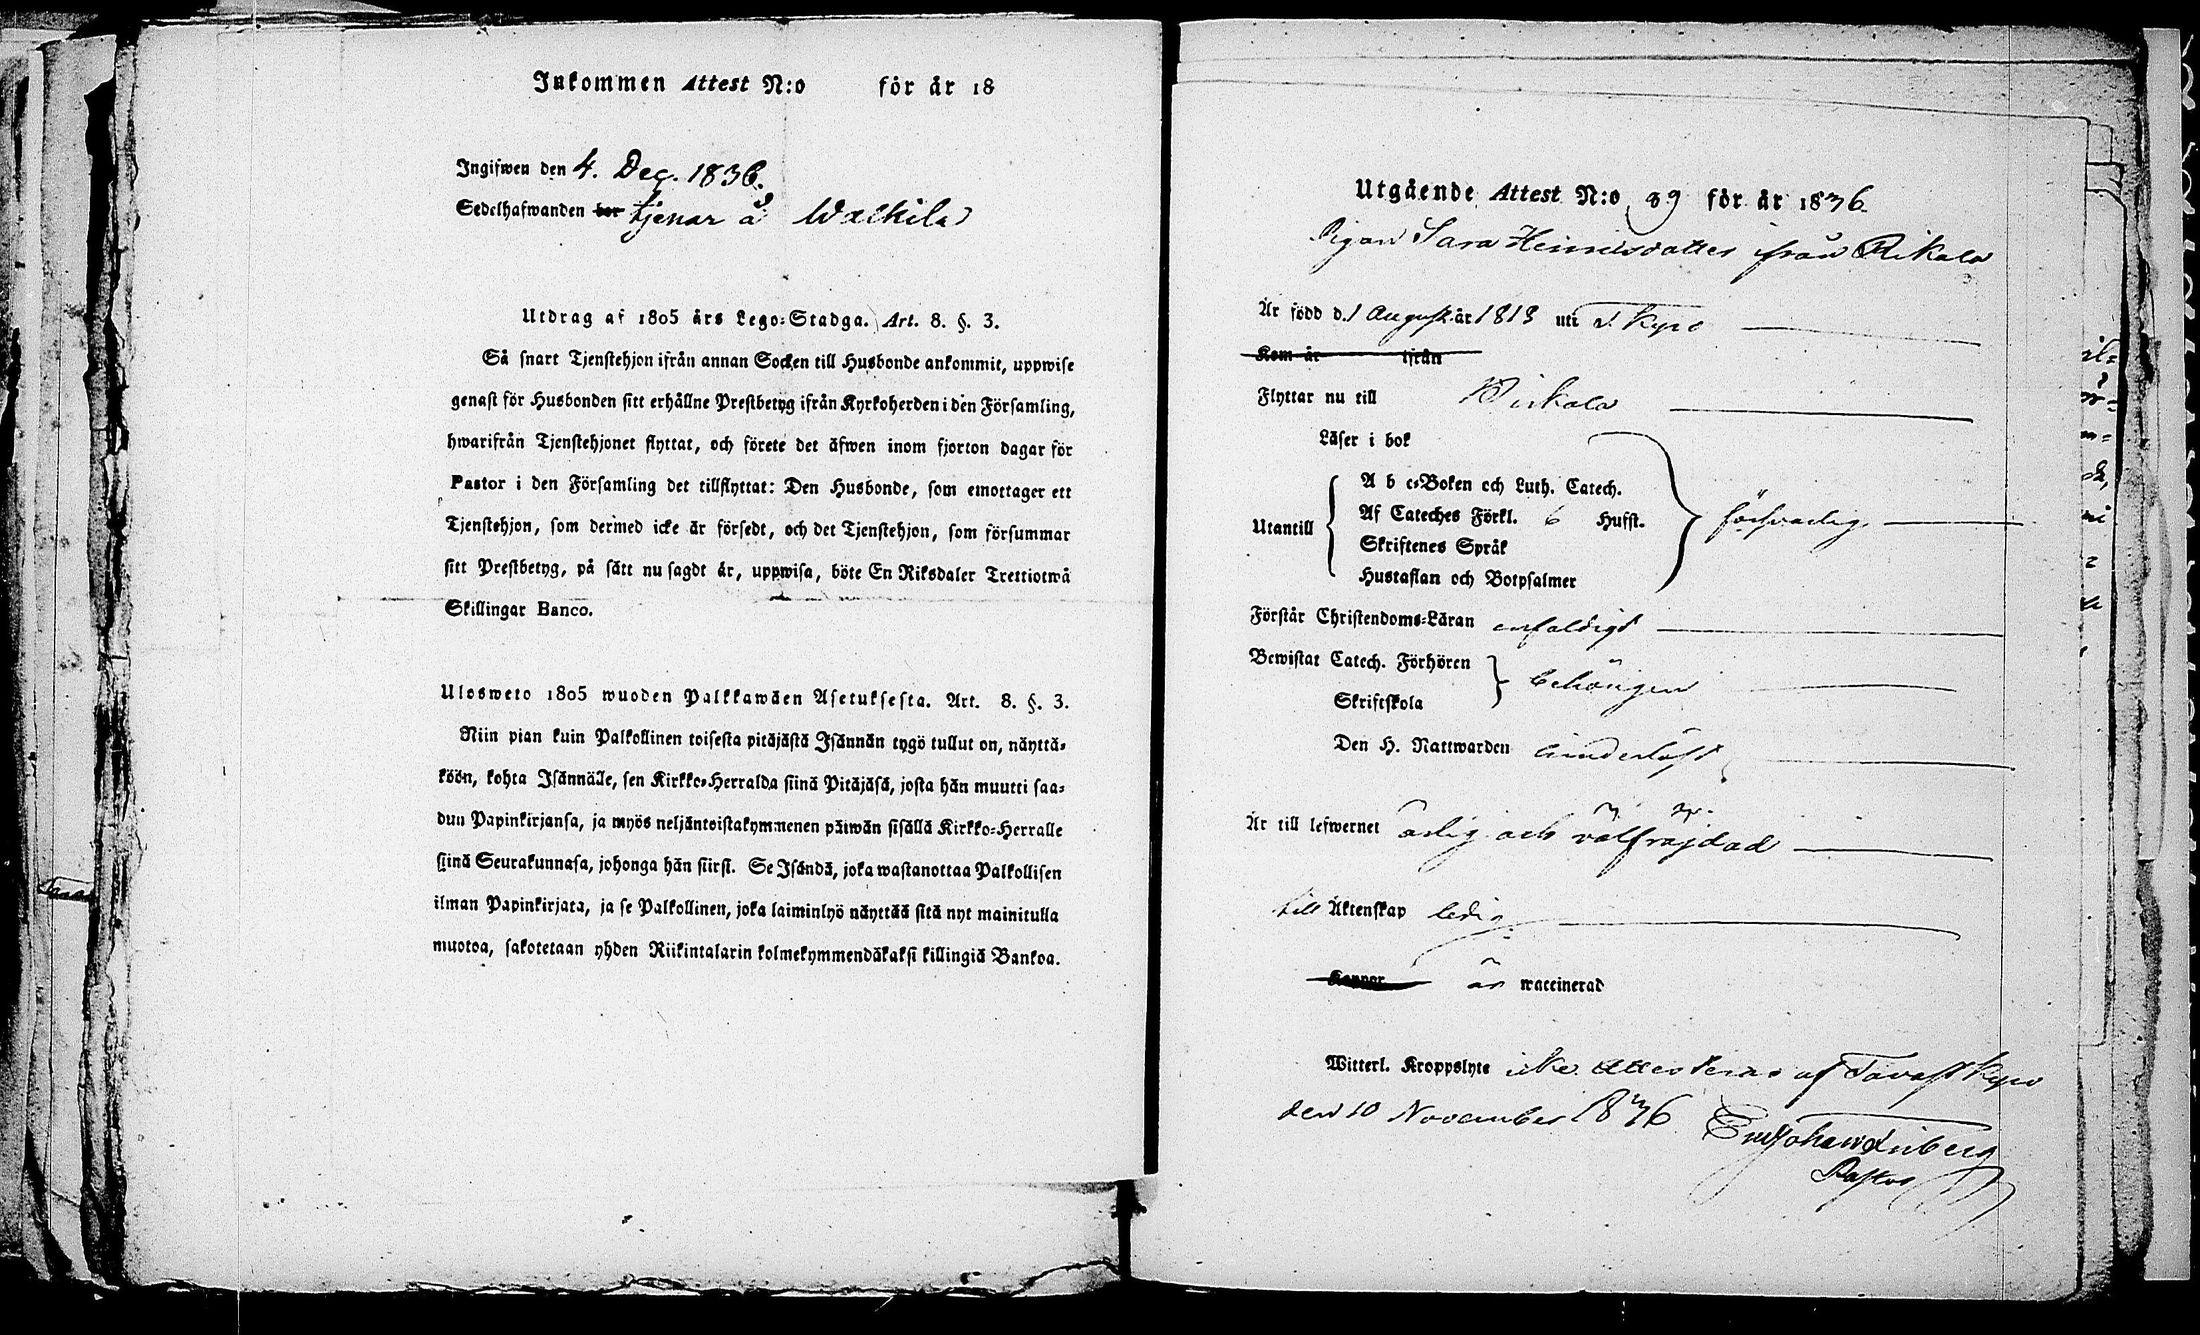 Inkommen Attest N:o för år 18
Ingifwen den 4. Dec. 1836.
Sedelhafwanden bor tjenar å Walkila
Utdrag af 1805 års Lego-Stadga. Art. 8. §. 3.
Så snart Tjenstehjon ifrån annan Socken till Husbonde ankommit, uppwise
genast för Husbonden sitt erhållne Prestbetyg ifrån Kyrkoherden i den Församling,
hwarifrån Tjenstehjonet flyttat, och förete det äfwen inom fjorton dagar för
Pastor i den Församling det tillflyttat: Den Husbonde, som emottager ett
Tjenstehjon, som dermed icke är försedt, och det Tjenstehjon, som försummar
sitt Prestbetyg, på sätt nu sagdt är, uppwisa, böte En Riksdaler Trettiotwå
Skillingar Banco.
Ulosweto 1805 wuoden Palkkawäen Asetuksesta. Art. 8. §. 3.
Niin pian kuin Palkollinen toisesta pitäjästä Isännän tygö tullut on, näyttä-
köön, kohta Isännälle, sen Kirkko-Herralda siinä Pitäjäsä, josta hän muutti saa-
dun Papinkirjansa, ja myös neljäntoistakymmenen päiwän sisällä Kirkko-Herralle
siinä Seurakunnasa, johonga hän siirst. Se Isändä, joka wastanottaa Palkollisen
ilman Papinkirjata, ja se Palkollinen, joka laiminlyö näyttää sitä nyt mainitulla
muotoa, sakotetaan yhden Riikintalarin kolmekymmendäkaksi killingiä Bankoa.
Utgående Attest N:o 89 för år 1836.
Pigan Sara Henricsdotter ifrån Rikala
Är född d. 1 August. år 1813 uti T. Kyro
Kom år ifrån
Flyttar nu till Birkala
Läser i bok
A b c-Boken och Luth. Catech.
Utantill Af Cateches Förkl. 6 Hufst. försvarlig
Skriftenes Språk
Hustaflan och Botpsalmer
Förstår Christendoms-Läran enfaldigt
Bewistat Catech. Förhören behörigen
Skriftskola
Den H. Nattwarden
Är till lefwernet ärlig och välfrejdad
till Äktenskap ledig
Koppor är waccinerad
Witterl. Kroppslyte icke. Attesteras af Tavastkyro
den 10 November 1836
Pastor